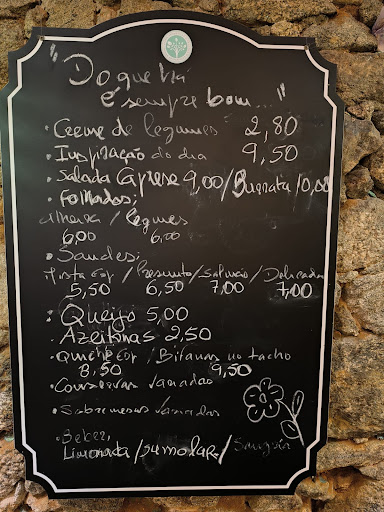 "Do que há
é sempre bom..."
· Creme de legumes 2,80
· Inspiração do dia 9,50
· Salada Caprese 9,00 / Burrata 10,00
· Folhados;
alheira / legumes
6,00 6,00
· Sandes;
/ Presunto / Salmão / Delicadas
5,50 6,50 7,00 7,00
· Queijo 5,00
· Azeitonas 2,50
· Quiche / Bifanas no tacho
8,50 9,50
· Conservas variadas
· Sobremesas variadas
· Beber,
Limonada / sumo lar. / Sangria